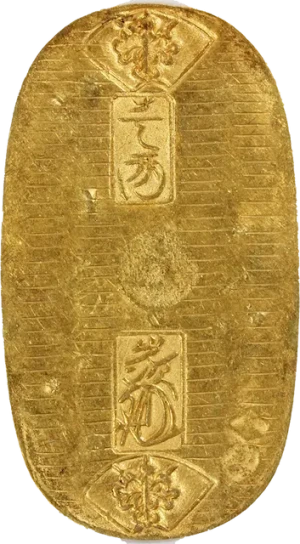 壹両
光次